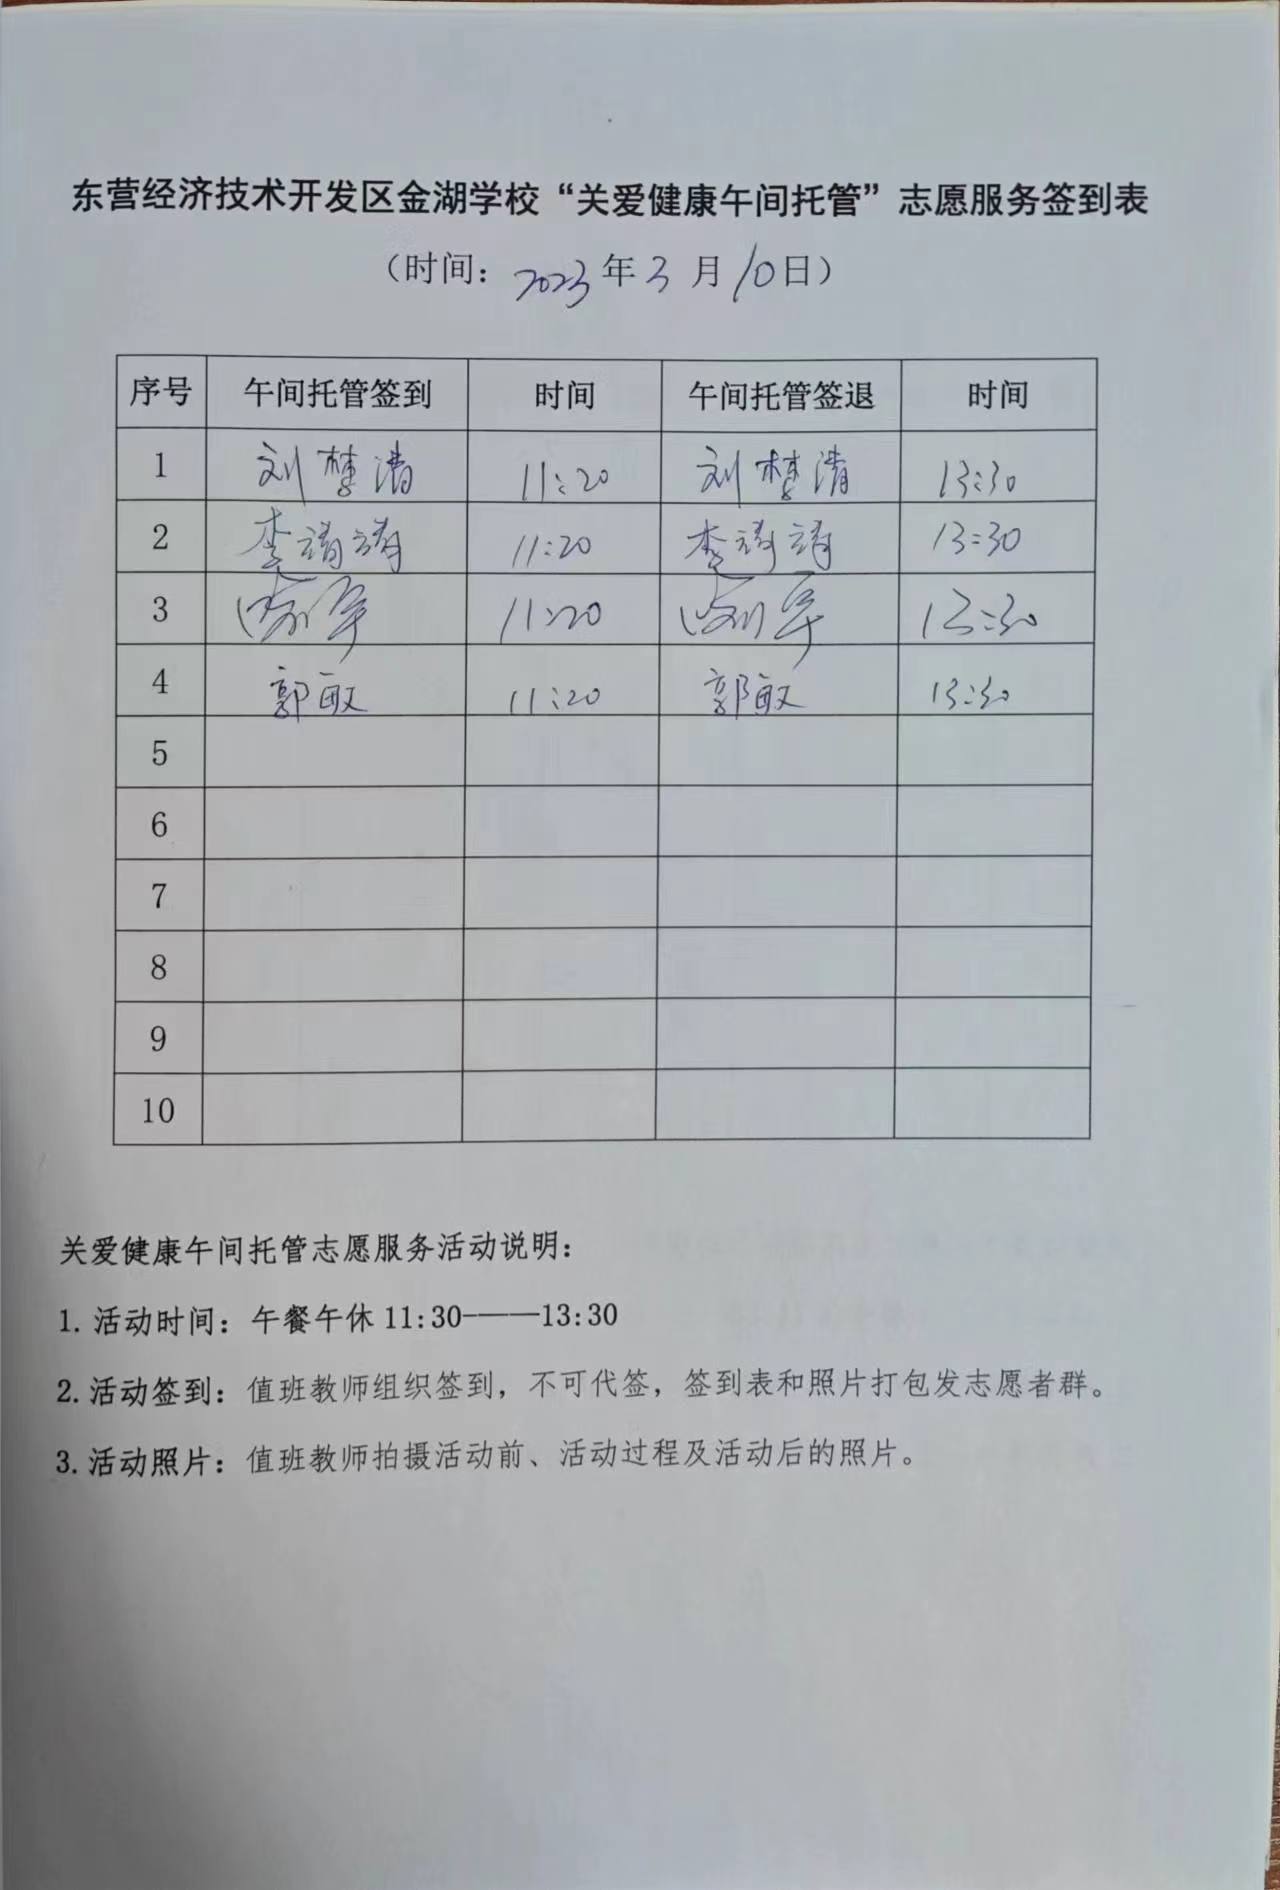 东营经济技术开发区金湖学校“关爱健康午间托管”志愿服务签到表
（时间：2023年3月10日）
序号 午间托管签到 时间 午间托管签退 时间
1 刘梦清 11:20 刘梦清 13:30
2 李靖靖 11:20 李靖靖 13:30
3 11:20 13:30
4 郭敏 11:20 郭敏 13:30
5
6
7
8
9
10
关爱健康午间托管志愿服务活动说明：
1.活动时间：午餐午休11:30——13:30
2.活动签到：值班教师组织签到，不可代签，签到表和照片打包发志愿者群。
3.活动照片：值班教师拍摄活动前、活动过程及活动后的照片。